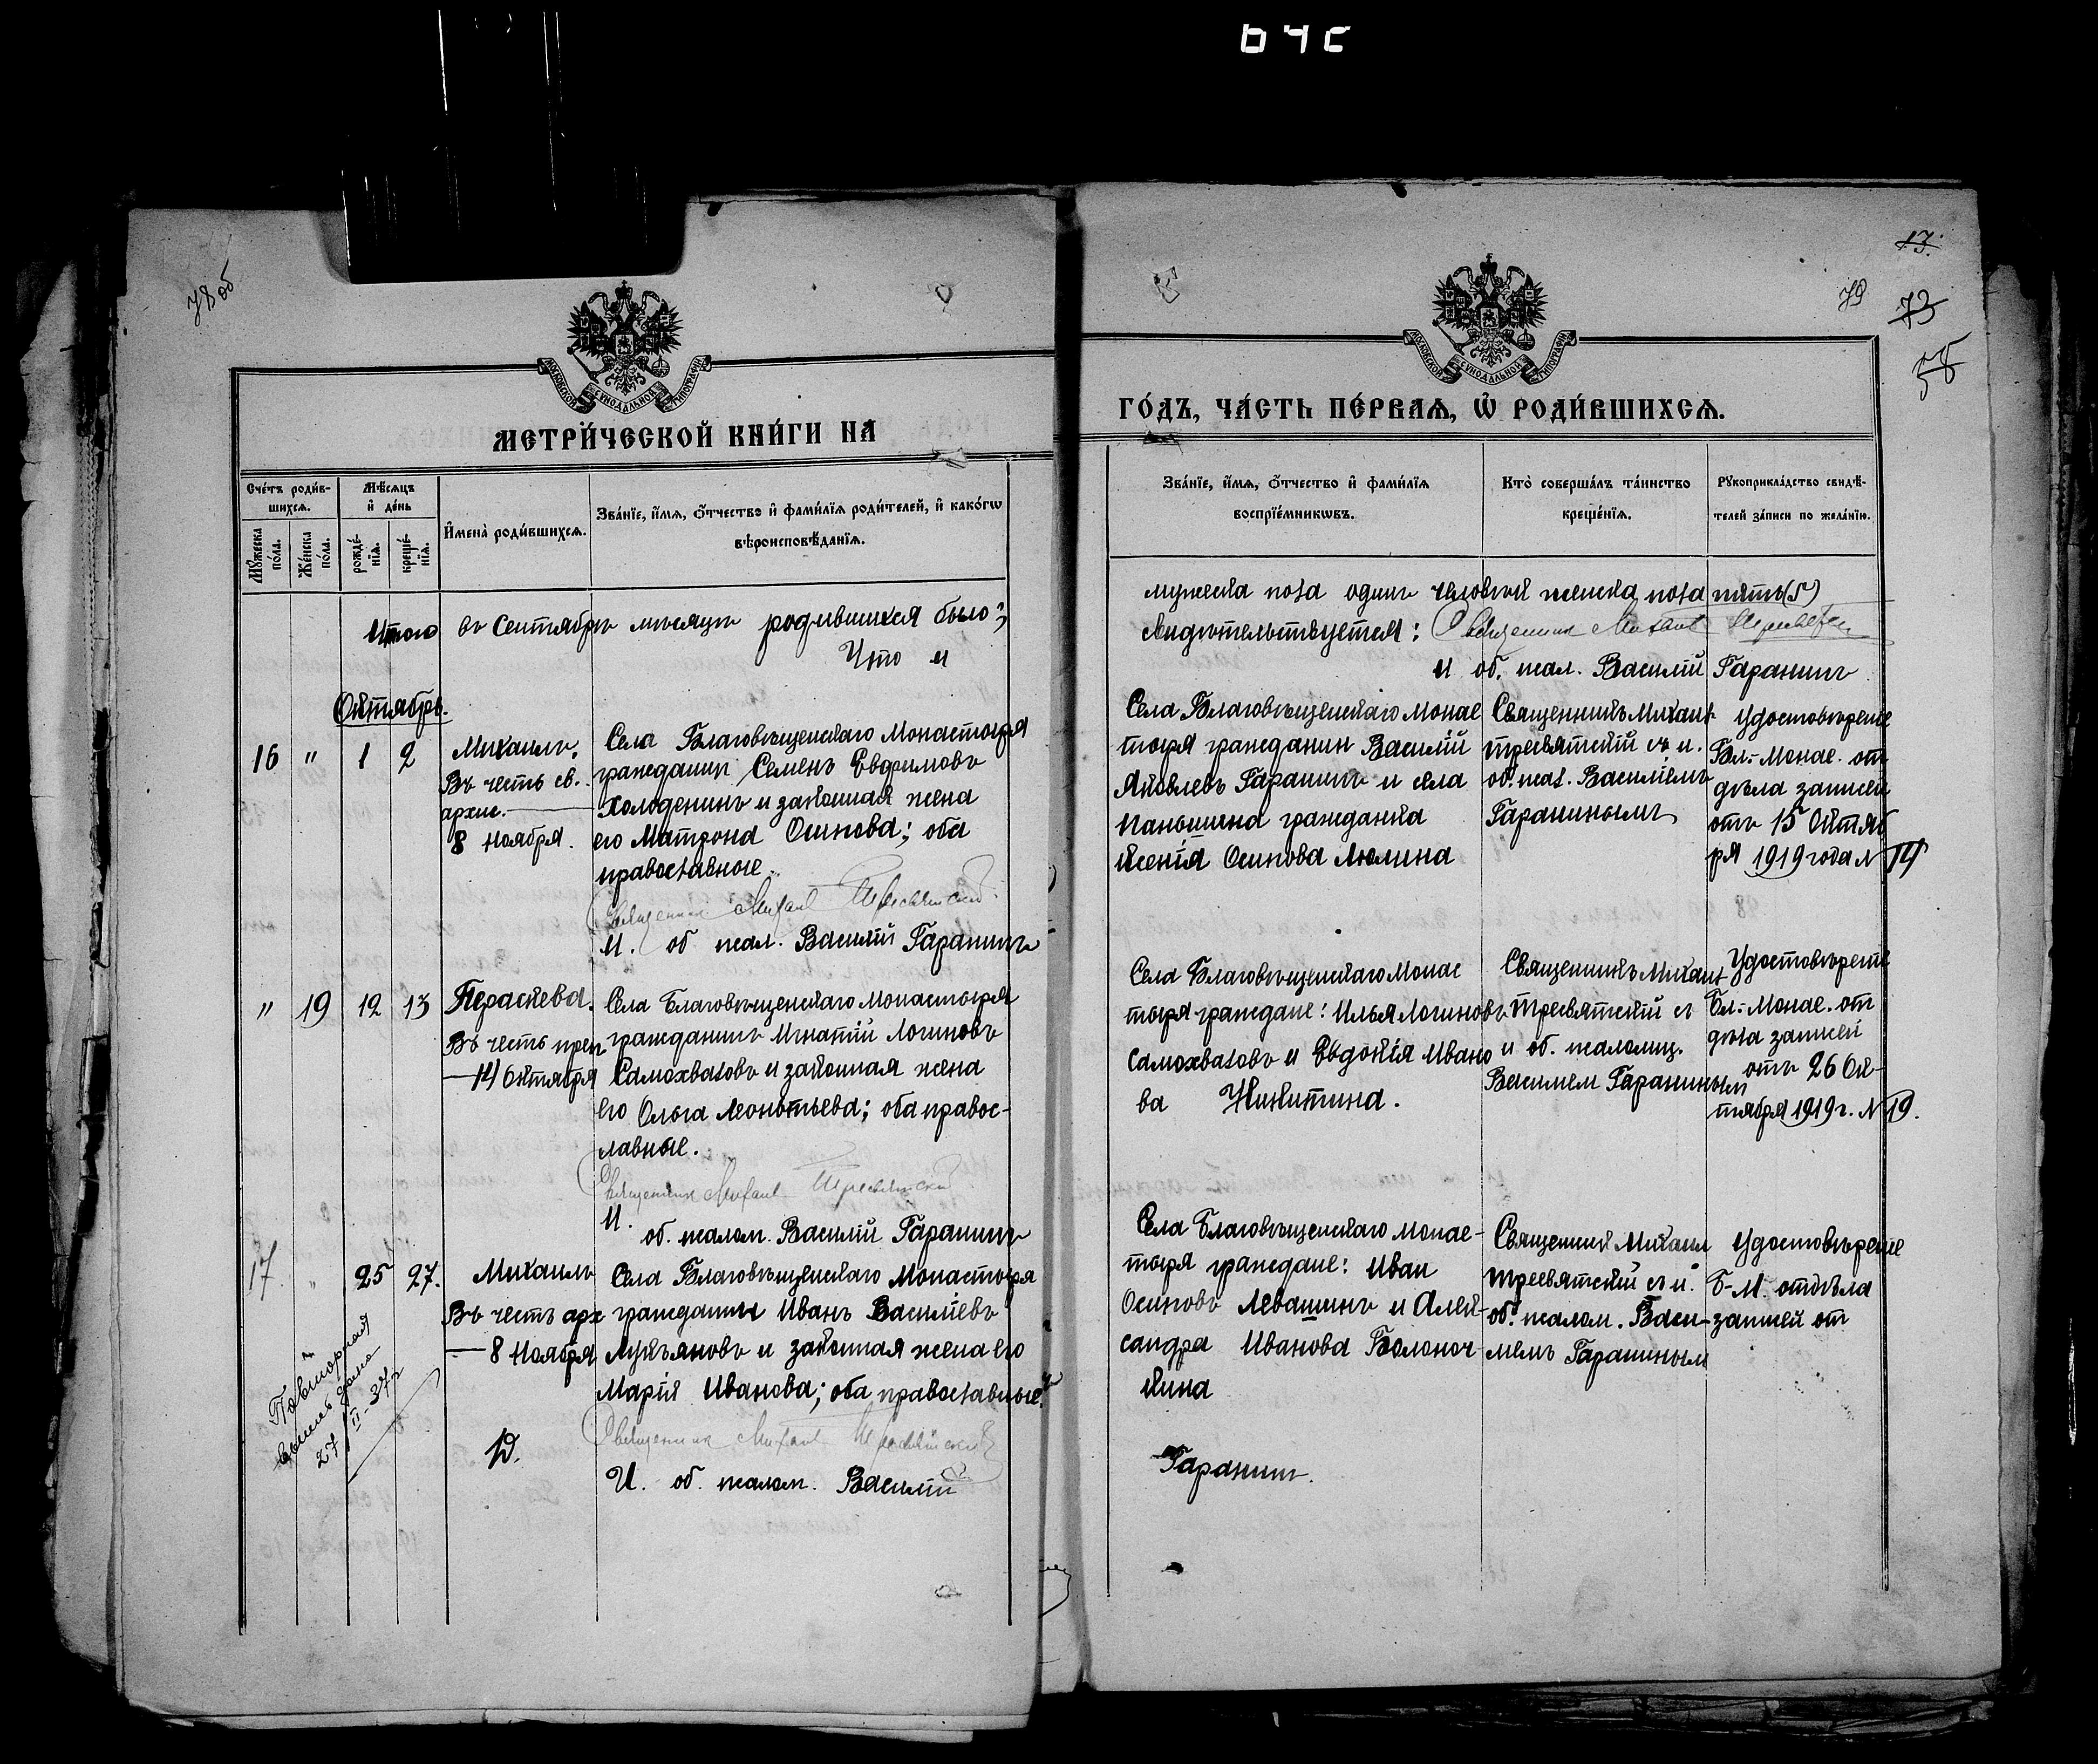 78 об
МОСКОВСКОЙ СУНОДАЛЬНОЙ ТИПОГРАФІИ
МЕТРИ́ЧЕСКОЙ КНИ́ГИ НА
Сче́тъ роди́в-
шихсѧ.
Мѣ́сѧцъ
и҆ де́нь
Мꙋ́жеска
по́ла.
Же́нска
по́ла.
рожде́-
нїѧ.
креще́-
нїѧ.
И҆мена̀ роди́вшихсѧ.
Зва́нїе, и҆́мѧ, ѻ҆́тчество и҆ фами́лїѧ роди́телей, и҆ како́гѡ
вѣроисповѣ́данїѧ.
Итого въ Сентябрѣ мѣсяцѣ родившихся было:
Что и
Октябрь.
16 " 1 2
Михаилъ.
Въ честь св.
архис.
8 ноября.
Села Благовѣщенскаго Монастыря
гражданин Семенъ Евфимовъ
Холоденинъ и законная жена
его Матрона Осипова; оба
православные.
Священник Михаил Тресвятский
И. об псал. Василій Гаранинъ
" 19 12 13
Параскева.
Въ честь преп
—14 Октября
Села Благовѣщенскаго Монастыря
гражданинъ Игнатій Логиновъ
Самохваловъ и законная жена
его Ольга Леонтьева; оба правос-
лавные.
Священник Михаил Тресвятский
И.
об. псалом. Василій Гаранинъ
17. " 25 27.
Михаилъ
Въ честь арх
— 8 Ноября
Села Благовѣщенскаго Монастыря
гражданин Иванъ Василіевъ
Лукъяновъ и законная жена его
Марія Иванова; оба православные.
Священник Михаил Тресвятский
И. об. псалом. Василій
Повторная
27/II-37г
13.
79
73
58
МОСКОВСКОЙ СУНОДАЛЬНОЙ ТИПОГРАФІИ
ГО́ДЪ, ЧА́СТЬ ПЕ́РВАѦ, Ѽ РОДИ́ВШИХСѦ.
Зва́нїе, и҆́мѧ, ѻ҆́тчество и҆ фами́лїѧ
воспрїе́мникѡвъ.
Кто̀ соверша́лъ та́инство
креще́нїѧ.
Рꙋкоприкла́дство свидѣ́-
телей за́писи по жела́нїю.
мужеска пола одинъ человѣкъ женска пола пять (5)
свидѣтельствуется: Священник Михаил Тресвятский
и об. псал. Василій Гаранинъ
Села Благовѣщенскаго Монас
тыря гражданин Василій
Яковлевъ Гаранинъ и села
Паньшина гражданка
Ксенія Осипова Люлина
Священникъ Михаил
Тресвятскій съ и.
об. псал. Василіемъ
Гаранинымъ
Удостовѣрение
Бл.-Монас. от
дѣла записей
отъ 15 Октяб
ря 1919 года № 14
Села Благовѣщенскаго Монас
тыря граждане: Илья Логиновъ
Самохваловъ и Евдокія Ивано
ва Никитина.
Священникъ Михаил
Тресвятский съ
и об. псаломщ.
Василием Гаранинымъ
Удостовѣрение
Бл.-Монас. от
дѣла записей
отъ 26 Ок-
тября 1919 г. № 19.
Села Благовѣщенскаго Монас-
тыря граждане: Иван
Осиповъ Левашинъ и Алек-
сандра Иванова Болоноч-
кина
Священник Михаил
Тресвятский съ и.
об. псалом. Васи-
лиемъ Гараниным
Удостовѣрение
Б-М. отдѣла
записей от
Гаранинъ.